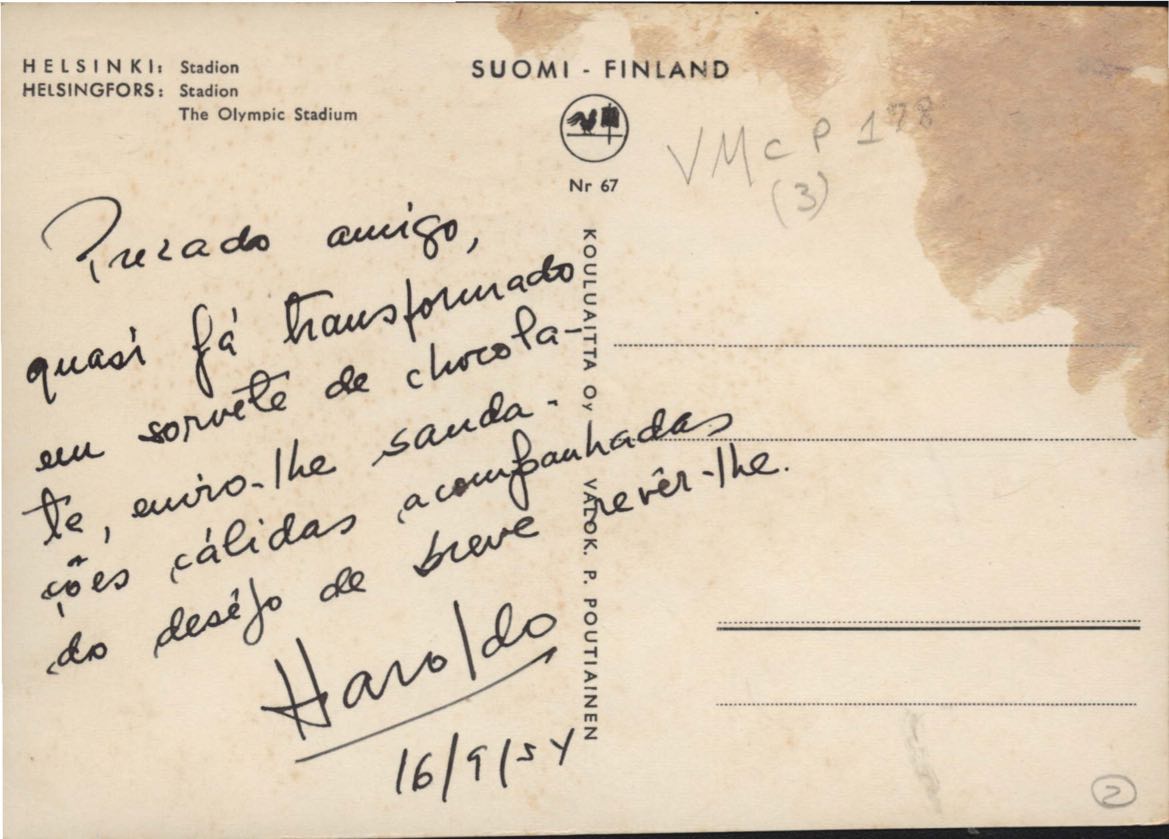 HELSINKI: Stadion
HELSINGFORS: Stadion
The Olympic Stadium
SUOMI - FINLAND
Nr 67
VMcP 178
(3)
KOULUAITTA Oy VALOK. P. POUTIAINEN
Prezado amigo,
quasi já transformado
em sorvête de chocola-
te, envio-lhe sauda-
ções cálidas acompanhadas
do desêjo de breve revêr-lhe.
Haroldo
16/9/54
2